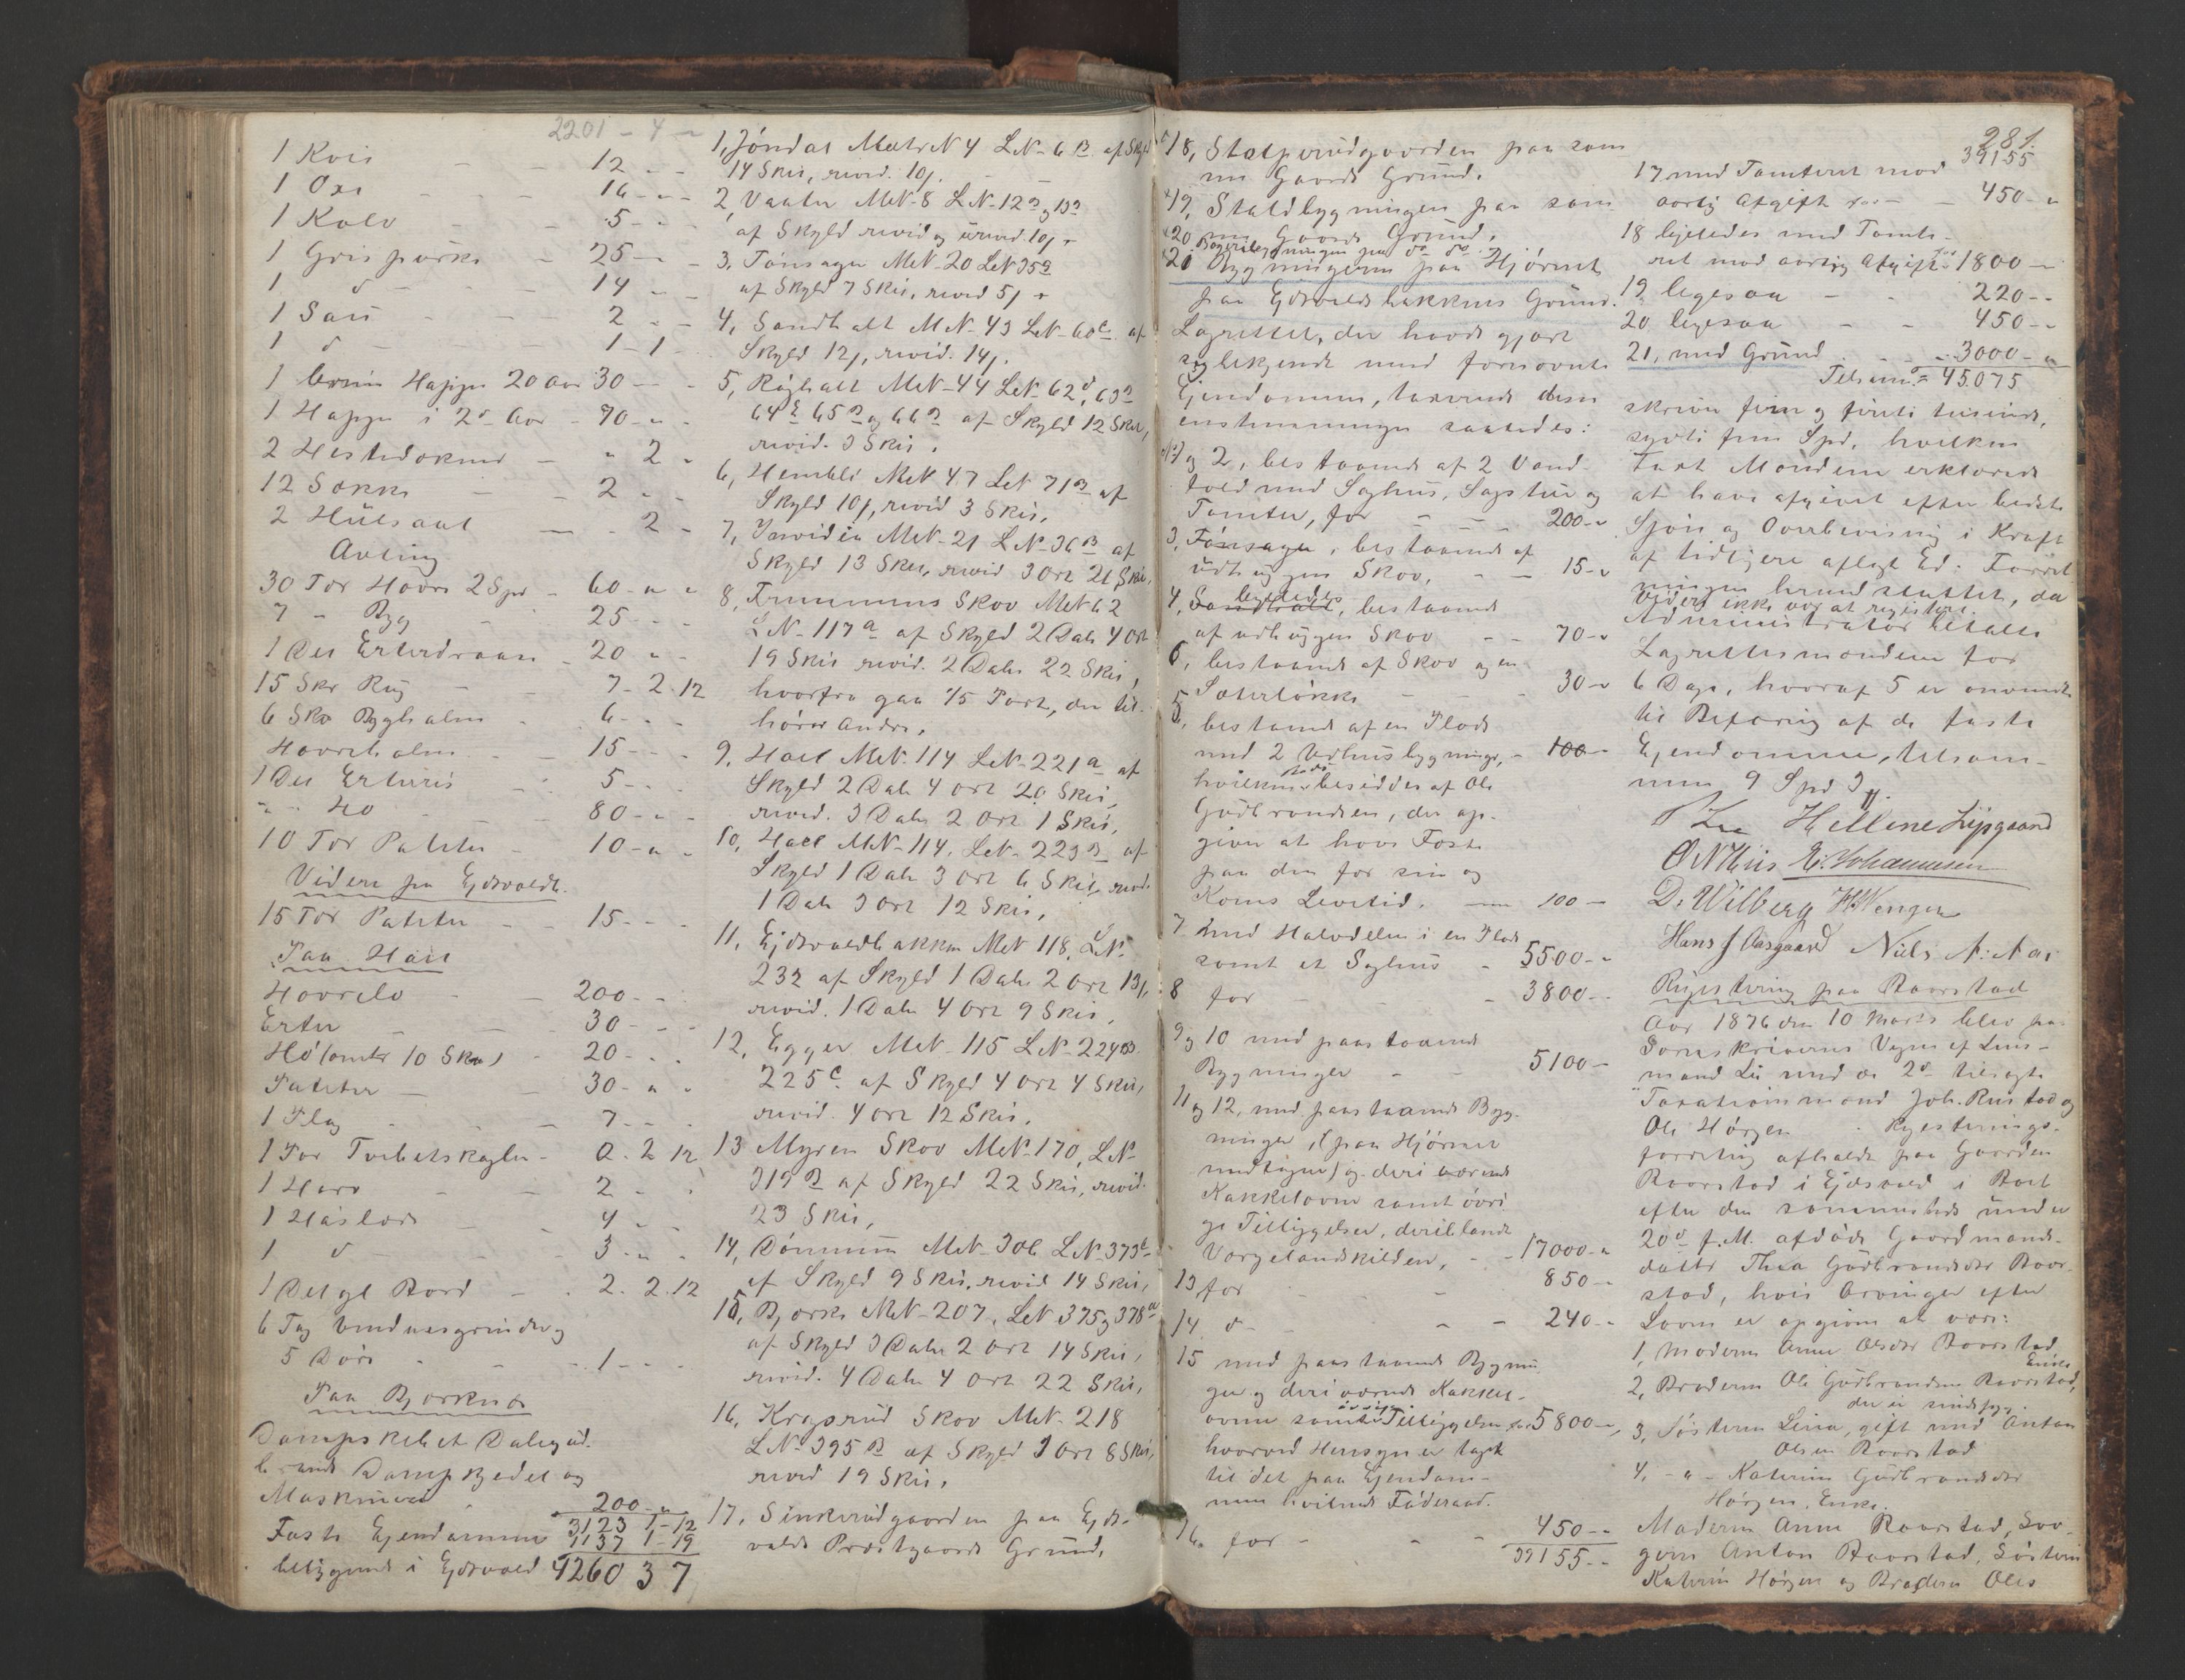 2201 - 4 -
1 Kvie - - 12 - -
1 Oxe - - 16 - -
1 Kalv - 5 - -
1 Grispurke - 25 - -
1 d - - 14 - -
1 Sau - - 2 - -
1 d - - 1 - 1 -
1 brun Hoppe 20 Aar 30 - -
1 Hoppe i 2d Aar - 90 - -
2 Hestedækner - " 2 "
12 Sække - - 2 - -
2 Hulsaal - - 2 -
Avling
30 Tdr Havre 2 Spd - 60 - -
7 - Byg - 25 - -
1 Del Erterdraan - 20 - -
15 Skr Rug - - 7 - 2. 12
6 Skr Byghalm - 6 - -
Havrehalm - 15 - -
1 Del Erteris - 5 - -
" " Hø - 80 - -
10 Tdr Poteter - 10 - -
Videre paa Ejdsvoldb.
15 Tdr Poteter - - 15 - -
Paa Hoel
Havrelo - - 200 - -
Erter - - 30 - -
Hø (omtr 10 Skd) - 20 - -
Poteter - 30 - -
1 Plog - 7 - -
1 Par Tvebetskagler - 0. 2 12
1 Harv - - 2 - -
1 Háslæde - - 4 - -
1 d - - 3 - -
1 Del gl Bord - . 2. 2. 12
6 Fag Vinduesgrinder og
5 Døre - - 1 - -
Paa Bjørkeøe
Dampskibet Dalegud.
brands Dampkjedel og
Maskineri 200 - -
3123 1-12
Faste Ejendomme 1137 1-19
beliggende i Ejdsvold 4260 3 7
1, Jøndal MatrN 4 LN- 6 B af Skyld
14 Skil, revid. 10/.
2, Vaaler MN-8 LN-12a og 13a
af Skyld revid og urevid. 10/ -
3, Tønsager MN-20 LN 35a
af Skyld 7 Skil, revid 5/ -
4, Sandholt MN-43 LN-60c af
Skyld 12/, revid. 14/.
5, Røgholt MN-44 LN-62d, 63a
64b 65a og 66a af Skyld 12 Skil,
revid. 3 Skil.
6, Hembli MN 47 LN 71B af
Skyld 10/, revid 3 Skil.
7, MN-21 LN-36B af
Skyld 13 Skil, revid 3 Ort 21 Skil.
8, Trummens Skov MN 62
LN-117a af Skyld 2 Dal 4 Ort
19 Skil revid. 2 Daler 22 Skil,
hvorfra gaa 1/5 Part, der til-
hører Andre.
9, Hoel MN-114 LN-221a af
Skyld 2 Dal 4 Ort 20 Skil,
revid. 3 Daler 2 Ort 1 Skil.
10, Hoel MN-114, LN-223B af
Skyld 1 Dal 3 Ort 6 Skil, revid.
1 Dal 3 Ort 12 Skil.
11, Ejdsvoldbakken MN 118, LN-
232 af Skyld 1 Daler 2 Ort 13/,
revid. 1 Dal 4 Ort 9 Skil.
12, Egger MN-115 LN-224B
225c af Skyld 4 Ort 4 Skil,
revid. 4 Ort 12 Skil.
13 Myren Skov MN-170, LN-
319B af Skyld 22 Skil, revid.
23 Skil,
14, Dønnum MN-306 LN-373b
af Skyld 9 Skil, revid 14 Skil,
15, Bjørke MN-207, LN 375 og 378a
af Skyld 3 Daler 2 Ort 14 Skil,
revid. 4 Daler 4 Ort 22 Skil,
16, Kragsrud Skov MN-218
LN-395B af Skyld 3 Ort 8 Skil,
revid 19 Skil.
17, Sinkerudgaarden paa Ejds-
volds Præstgaards Grund.
18, Stolperudgaarden paa sam
me Gaards Grund.
19, Staldbygningen paa sam
me Gaards Grund.
20 Bageribygningen paa do do
21 Bygningerne paa Hjørnet
paa Ejdsvoldsbakkens Grund.
Lagrettet, der havde gjort
sig bekjendt med fornævnte
Ejendomme, taxerede dem
enstemmigen saaledes:
1 og 2, bestaaende af 2 Vand-
fald med Saghus, Sagstue og
Tomter, for - - 200 -
3, Tønsager, bestaaende af
udhuggen Skov, - - 15 -
4, ligeledes, bestaaende
af udhuggen Skov - - 70 -
6, bestaaende af Skov og en
Sæterløkke - - 30 -
5, bestaaende af en Plads
med 2 Udhusbygninger, - 100 -
hvilken Plads besiddes af Ole
Gudbrandsen, der op-
giver at have Fæste
paa den for sin og
Kones Levetid. - 100 -
7 med Halvdelen i en Plads
samt et Saghus - 5500 - -
8 for - - 3800 - -
9 og 10 med paastaaende
Bygninger - - 5100 -
11 og 12, med paastaaende Byg-
ninger, (paa Hjørnet
undtagen) og deri værende
Kakkelovne samt øvri
ge Tilliggelser, deriblandt
Vorgelandskilden, - - 17000 -
13, for - - 850 -
14 d - - - 240 -
15 med paastaaende Bygnin
ger og deri værende Kakkel-
ovne samt øvrige Tilliggelser for 5800 -,
hvorved Hensyn er taget
til det paa Ejendom-
men hvilende Føderaad.
16. for - - 450 - -
39155 - -
281.
39155
17 med Tomteret mod
aarlig Afgift for - - 450 - -
18 ligeledes med Tomte-
ret mod aarlig Afgift for 1800 -
19 ligesaa - - 220 - -
20 ligesaa - - 450 - -
21, med Grund - - 3000 - -
Tilsam. = 45.075
skriver fem og firti tusinde,
sytti fem Spd, hvilken
Taxt Mændene erklærede
at have afgivet efter bedste
Skjøn og Overbevisning i Kraft
af tidligere aflagt Ed: Forret
ningen hermed sluttet, da
Videre ikke var at registere.
Administrator betalte
Lagrettesmændene for
6 Dage, hvoraf 5 er anvendt
til Befaring af de faste
Ejendomme, tilsam-
men 9 Spd 3 .
Hellene Lysgaard
O N Huus E. Johannesen
D. Wilberg H. Wenger
Hans J Aasgaard Niels A: Aas
Registering paa Raarstad
Aar 1876 den 10 Marts blev paa
Sorenskriverens Vegne af Lens-
mand Lie med de 2d tilsagte
Taxationsmænd Joh. Rustad og
Ole Hørgen . Registerings-
forretning afholdt paa Gaarden
Raarstad i Ejdsvold i Boet
efter den sammesteds under
20d f. M. afdøde Gaardmands-
datter Thea Gudbrandsdr Raar-
stad, hvis Arvinger efter
Loven er opgiven at være:
1, Moderen Anne Olsdr Raarstad,
Enke
2, Broderen Ole Gudbrandsen Raarstad,
der er sindssyg.
3, Søsteren Lina, gift med Anton
Olsen Raarstad
4, - " - Katerine Gudbrandsdr
Hørgen, Enke.
Moderen Anne Raarstad, Svo-
geren Anton Raarstad, Søsteren
Katerine Hørgen og Broderen Oles